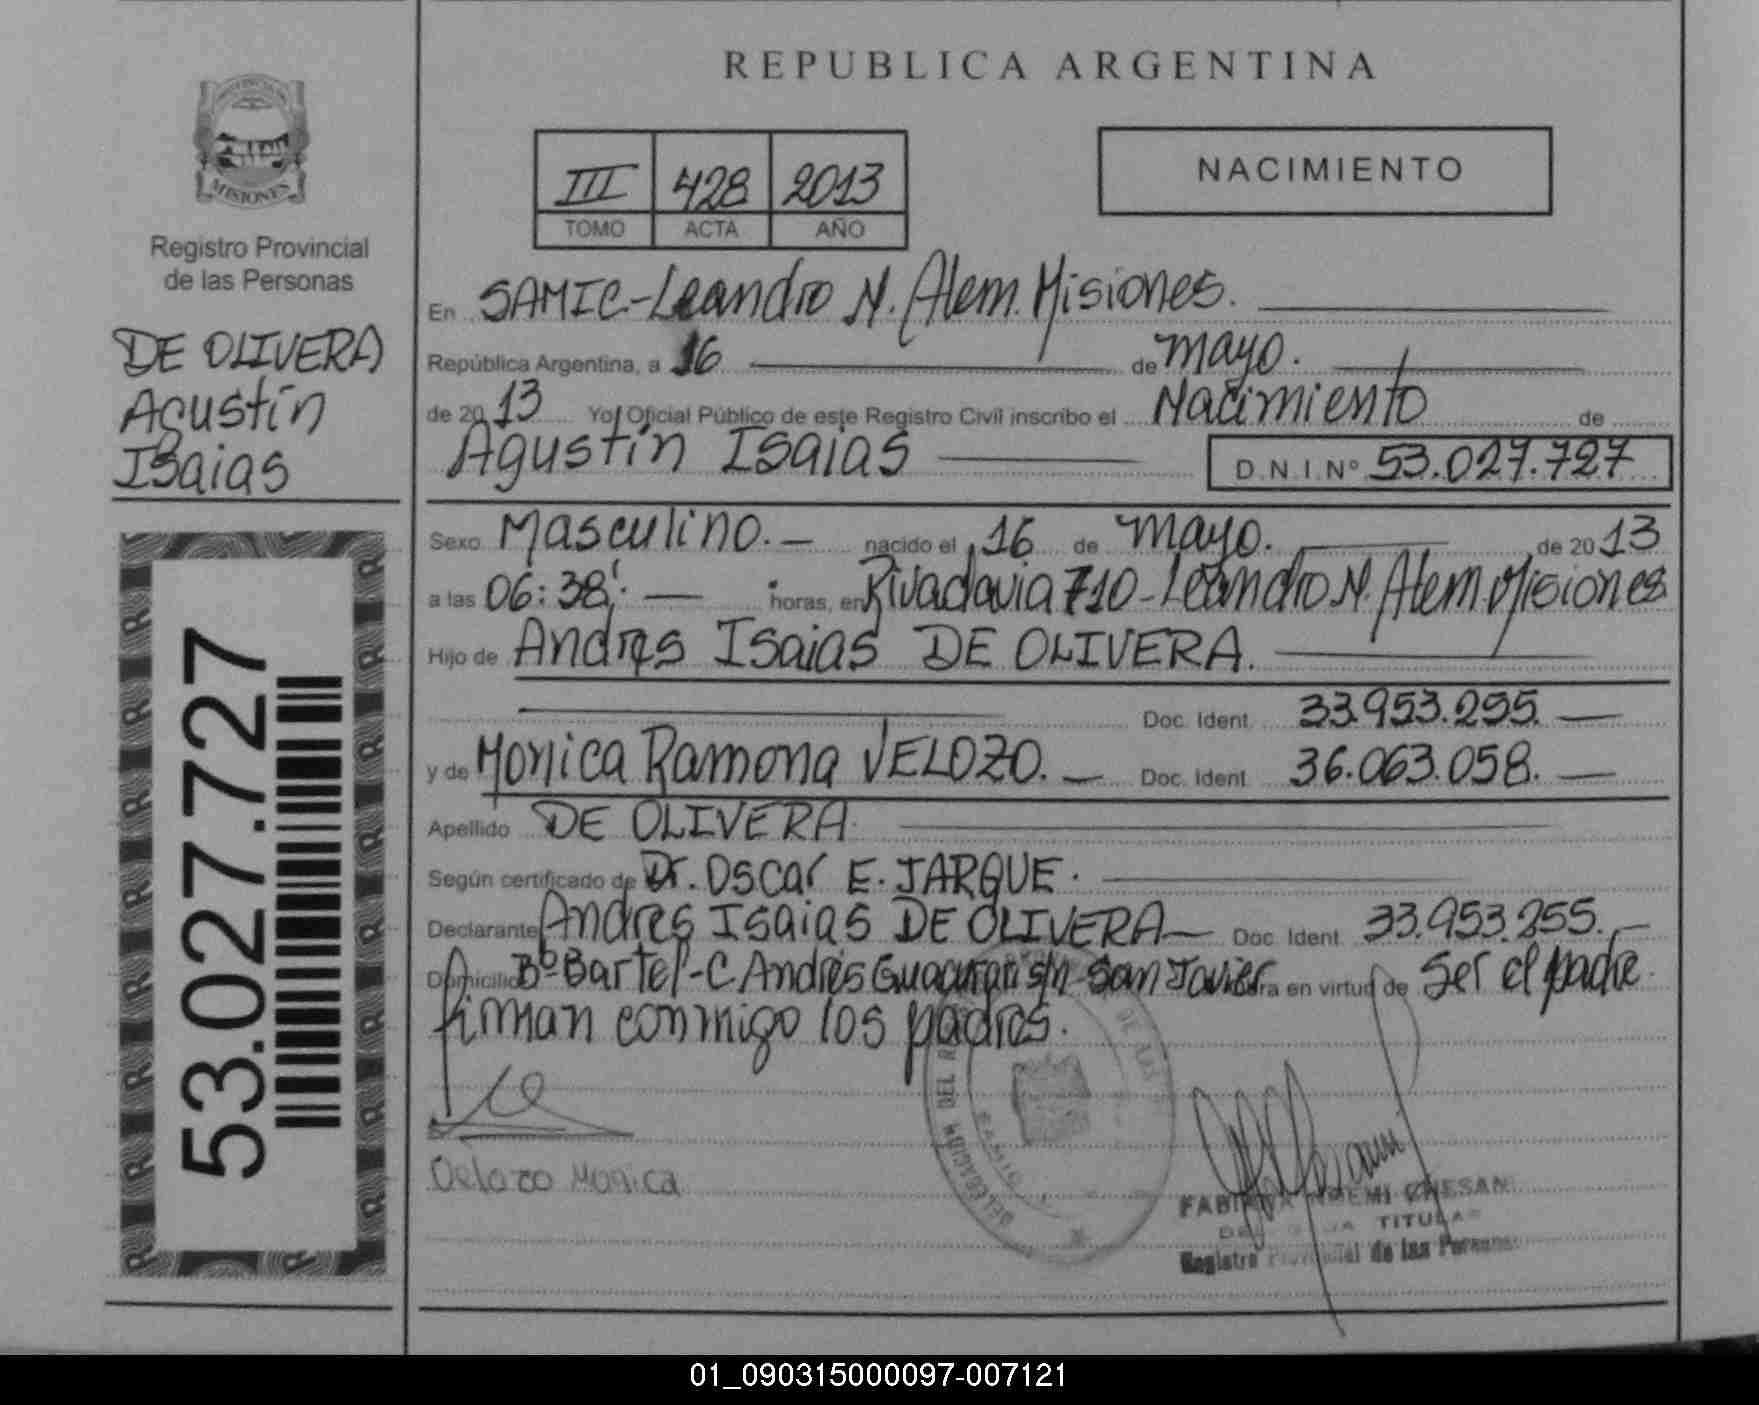 REPUBLICA ARGENTINA
MISIONES
Registro Provincial
de las Personas
DE OLIVERA
Agustín
Isaias
53.027.727
III 428 2013
TOMO ACTA AÑO
NACIMIENTO
En SAMIC-Leandro N. Alem. Misiones.
República Argentina, a 16 de mayo.
de 2013 Yo, Oficial Público de este Registro Civil inscribo el Nacimiento de
Agustín Isaias D.N.I. Nº 53.027.727
Sexo Masculino.- nacido el 16 de mayo. de 2013
a las 06:38'.- horas, en Rivadavia 710-Leandro N. Alem Misiones
Hijo de Andres Isaias DE OLIVERA.
Doc. Ident. 33.953.255.
y de Monica Ramona VELOZO. Doc. Ident. 36.063.058.
Apellido DE OLIVERA.
Según certificado de Dr. Oscar E. JARQUE.
Declarante Andres Isaias DE OLIVERA Doc. Ident. 33.953.255.
Domicilio Bº Bartel-C Andrés Guacurari s/n San Javier en virtud de Ser el padre.
firman conmigo los padres.
Velozo Monica
TITULAR
Registro Provincial de las Personas
01_090315000097-007121